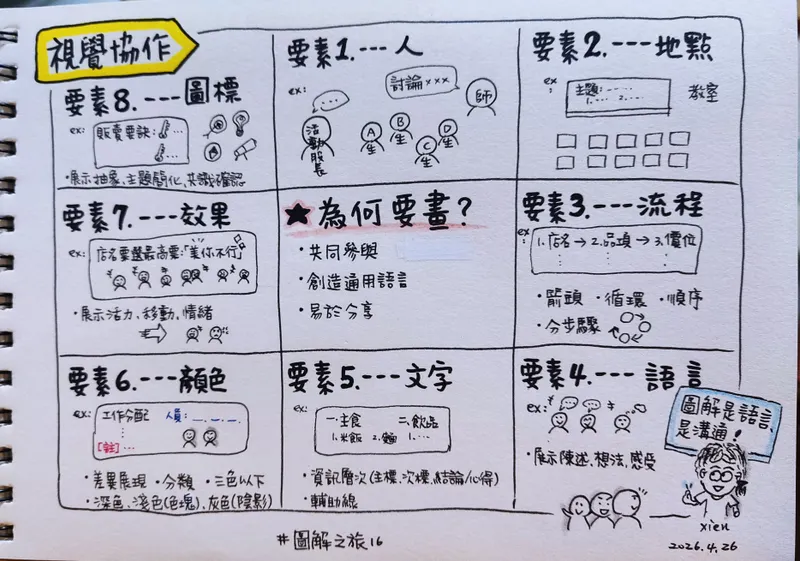 視覺協作
要素1.---人
ex:
...
討論×××
師
活動股長
A
生
B
生
C
生
D
生
要素2.---地點
ex
:
主題:-- --
1.--- 2.---
教室
要素3.---流程
ex
:
1.店名→2.品項→3.價位
・箭頭 ・循環 ・順序
・分步驟
要素4.---語言
ex:
・展示陳述、想法、感受
要素5.---文字
ex:
一.主食 二.飲品
1.米飯 2.麵 1.---
・資訊層次(主標、次標、結論/心得)
・輔助線
要素6.---顏色
ex:
工作分配 人員:
[註]---
・差異展現 ・分類 ・三色以下
・深色、淺色(色塊)、灰色(陰影)
要素7.---效果
ex:
店名票選最高票:「差你不行」
・展示活力、移動、情緒
要素8.---圖標
ex:
販賣要訣:
・展示抽象、主題簡化、共識確認
★為何要畫?
・共同參與
・創造通用語言
・易於分享
圖解是語言、
是溝通!
xien
2026.4.26
#圖解之旅16